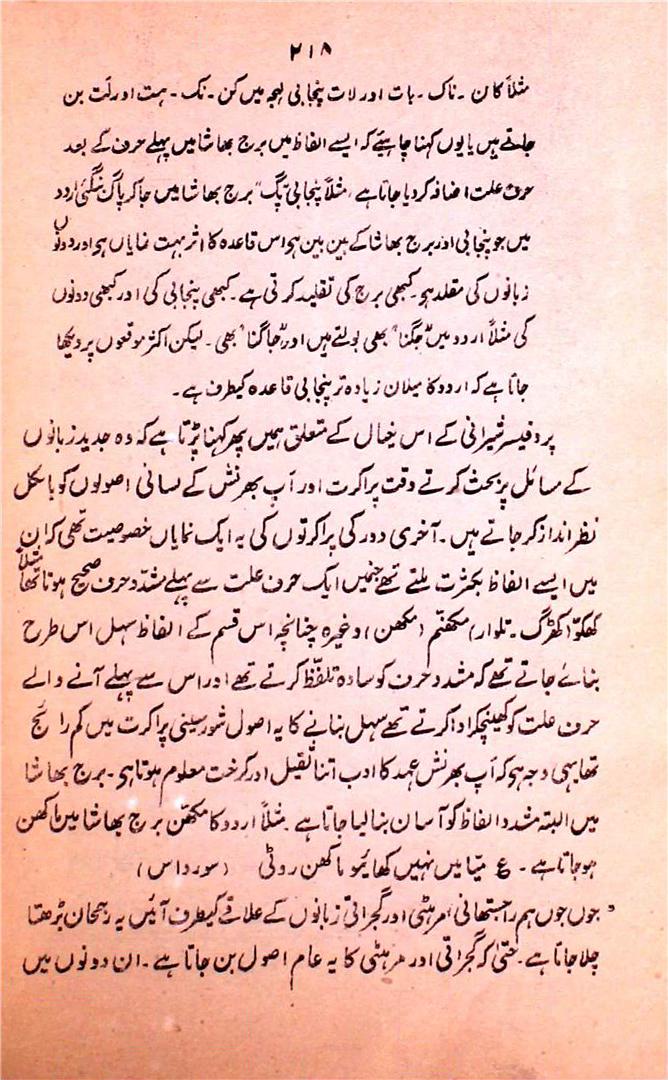 ۲۱۸
مثلاً کان ۔ ناک ۔ بات اور لات پنجابی لہجہ میں کن ۔ نک ۔ بہت اور لت بن
جاتے ہیں یا یوں کہنا چاہیئے کہ ایسے الفاظ میں برج بھاشا میں پہلے حرف کے بعد
حرف علت اضافہ کر دیا جاتا ہے مثلاً پنجابی پگ" برج بھاشا میں جا کر پاگ بنگئی اردو
میں جو پنجابی اور برج بھاشا کے بین بین ہو اس قاعدہ کا اثر بہت نمایاں ہو اور دونوں
زبانوں کی مقلد ہو ۔ کبھی برج کی تقلید کرتی ہے ۔ کبھی پنجابی کی اور کبھی دونوں
کی مثلاً اردو میں "جگنا" بھی بولتے ہیں اور "جاگنا" بھی ۔ لیکن اکثر موقعوں پر دیکھا
جاتا ہے کہ اردو کا میلان زیادہ تر پنجابی قاعدہ کیطرف ہے ۔
پروفیسر شیرانی کے اس خیال کے متعلق ہمیں پھر کہنا پڑتا ہے کہ وہ جدید زبانوں
کے مسائل پر بحث کرتے وقت پراکرت اور اَپ بھرنش کے لسانی اصولوں کو بالکل
نظر انداز کر جاتے ہیں ۔ آخری دور کی پراکرتوں کی یہ ایک نمایاں خصوصیت تھی کہ ان
میں ایسے الفاظ بکثرت ملتے تھے جنمیں ایک حرف علت سے پہلے مشدد حرف صحیح ہوتا تھا مثلاً
کھگو (کھڑگ ۔ تلوار) مکھنّم (مکھن) وغیرہ چنانچہ اس قسم کے الفاظ سہل اس طرح
بنائے جاتے تھے کہ مشدد حرف کو سادہ تلفظ کرتے تھے اور اس سے پہلے آنے والے
حرف علت کو کھینچکر ادا کرتے تھے سہل بنانے کا یہ اصول شورسینی پراکرت میں کم رائج
تھا یہی وجہ ہو کہ اَپ بھرنش عہد کا ادب اتنا ثقیل اور کرخت معلوم ہوتا ہو ۔ برج بھاشا
میں البتہ مشدد الفاظ کو آسان بنا لیا جاتا ہے ۔ مثلاً اردو کا مکھّن برج بھاشا میں ماکھن
ہو جاتا ہے ۔ ع میّا میں نہیں کھائیو ماکھن روٹی (سورداس)
جوں جوں ہم راجستھانی، مرہٹی اور گجراتی زبانوں کے علاقے کیطرف آئیں یہ رجحان بڑھتا
چلا جاتا ہے ۔ حتیٰ کہ گجراتی اور مرہٹی کا یہ عام اصول بن جاتا ہے ۔ ان دونوں میں